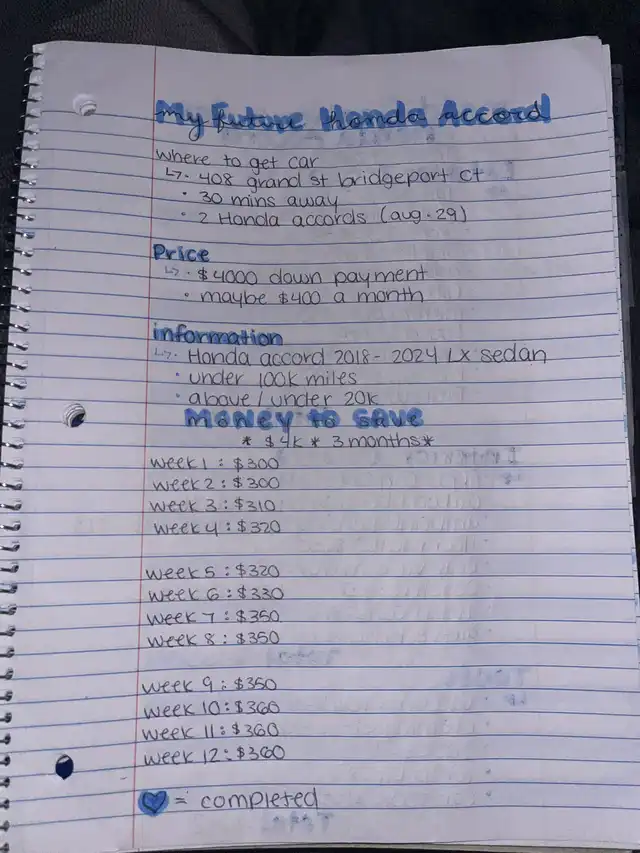 My Future Honda Accord
where to get car
↳· 408 grand st bridgeport ct
· 30 mins away
· 2 Honda accords (aug. 29)
Price
↳· $4000 down payment
· maybe $400 a month
information
↳· Honda accord 2018-2024 LX sedan
· under 100k miles
· above/under 20k
MONEY to SAVE
* $4k * 3 months*
week 1 : $300
week 2 : $300
week 3 : $310
week 4 : $320
week 5 : $320
week 6 : $330
week 7 : $350
week 8 : $350
week 9 : $350
week 10 : $360
week 11 : $360
week 12 : $360
💙 = completed